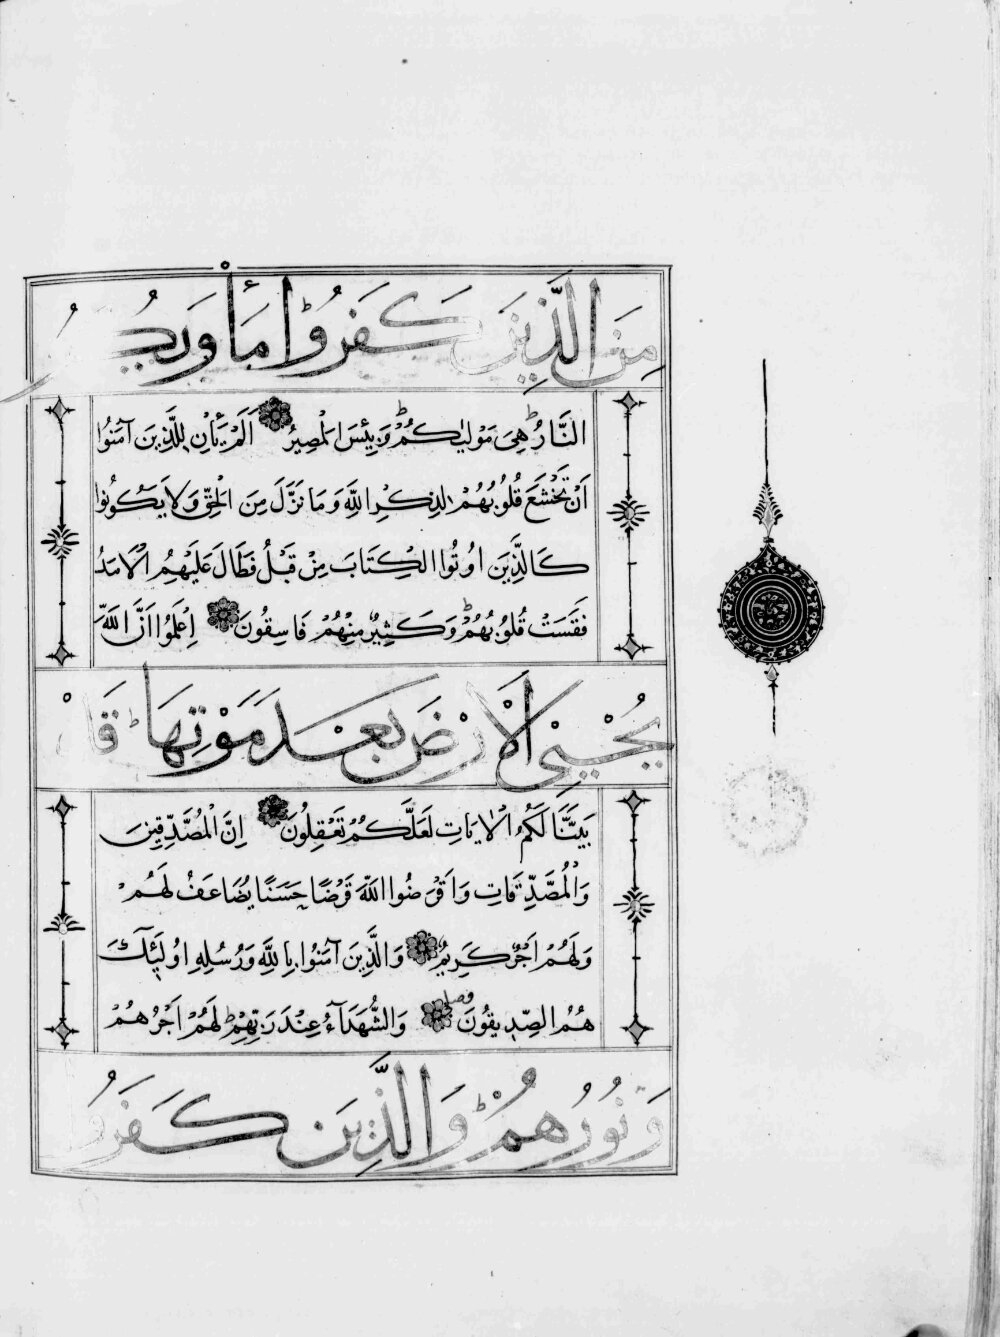 مِنَ الَّذِينَ كَفَرُوْا مَأْوٰيكُمُ
النَّارُ هِيَ مَوْلٰيكُمْ وَبِئْسَ الْمَصِيرُ اَلَمْ يَأْنِ لِلَّذِينَ آمَنُوا
اَنْ تَخْشَعَ قُلُوبُهُمْ لِذِكْرِ اللَّهِ وَمَا نَزَّلَ مِنَ الْحَقِّ وَلَا يَكُونُوا
كَالَّذِينَ اُوتُوا الْكِتَابَ مِنْ قَبْلُ فَطَالَ عَلَيْهِمُ الْاَمَدُ
فَقَسَتْ قُلُوبُهُمْ وَكَثِيرٌ مِنْهُمْ فَاسِقُونَ اِعْلَمُوا اَنَّ اللَّهَ
يُحْيِي الْاَرْضَ بَعْدَ مَوْتِهَا قَدْ
بَيَّنَّا لَكُمُ الْاٰيَاتِ لَعَلَّكُمْ تَعْقِلُونَ اِنَّ الْمُصَّدِّقِينَ
وَالْمُصَّدِّقَاتِ وَاَقْرَضُوا اللَّهَ قَرْضًا حَسَنًا يُضَاعَفُ لَهُمْ
وَلَهُمْ اَجْرٌ كَرِيمٌ وَالَّذِينَ آمَنُوا بِاللَّهِ وَرُسُلِهِ اُولَٓئِكَ
هُمُ الصِّدِّيقُونَ وَالشُّهَدَآءُ عِنْدَ رَبِّهِمْ لَهُمْ اَجْرُهُمْ
وَنُورُهُمْ وَالَّذِينَ كَفَرُوا